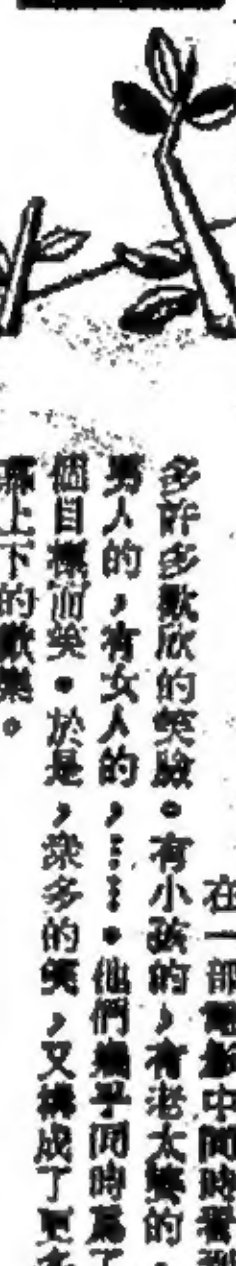 在一部電影中同時看到
多許多歡欣的笑臉。有小孩的,有老太婆的,
男人的,有女人的,……。他們幾乎同時爲了
個目標而笑。於是,衆多的笑,又構成了更
幕上下的歡樂。